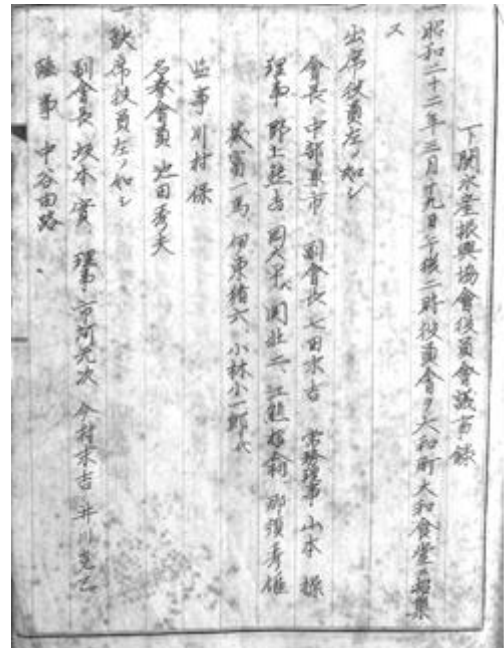 下関水産振興協會役員會議事録
一 昭和二十二年三月十九日午後二時役員會ヲ大和町大和食堂ニ召集
ス
一 出席役員左ノ如シ
會長 中部 市 副會長 七田末吉 常務理事 山本 操
理事 野上 吉 岡 早 関壮二 江 那須 雄
富一馬 伊東 六 小林小一郎代
監事 川村保
名誉會員 池田秀夫
一 欠席役員左ノ如シ
副會長 坂本實 理事 市河光次 今村末吉 井川
監事 中谷由路